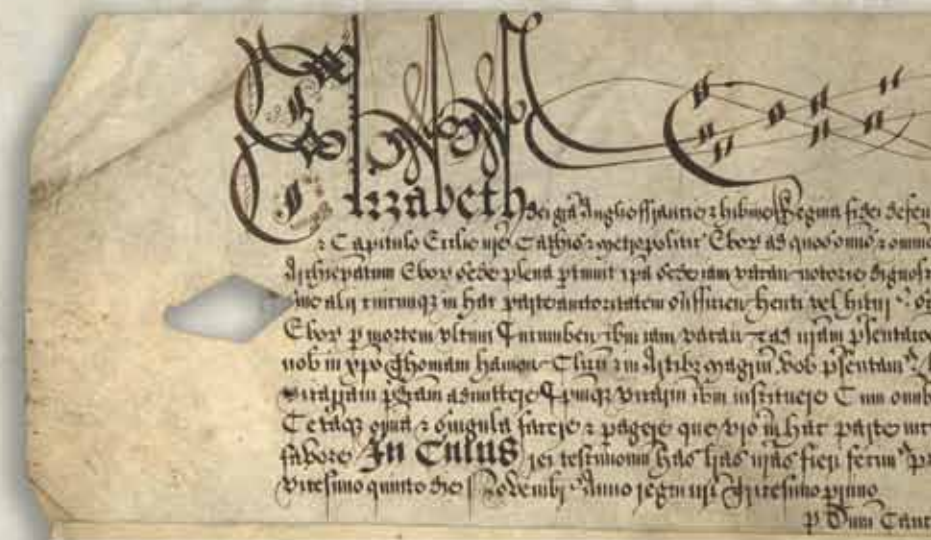 Elizabeth dei gra Anglie ffrancie & hibnie Regina fidei defen
& Capitulo Ecclie nre Cathis & metropolitice Ebor ad quos omis & omnio
Archiepatum Ebor sede plena ptinuit ipa sede iam vacan notorie dignos
sive alij cuicumq in hac parte auctoritatem sufficien henti vel hitur
Ebor p mortem ultimi Incumben ibm iam vacan ad nram psentaco
nob in xpo Thomam hamon Clicu & in Artibz magrm vob psentam
vicariam pdcam admittere Ipmq vicariu ibm instituere Cum omib
Cetaq omia & singula facere & pagere que vro in hac parte
favore In Cuius rei testimoniu has lras nras fieri fecim
vicesimo quinto die Novembr Anno regni nri Tricesimo primo
p Dnm Canc